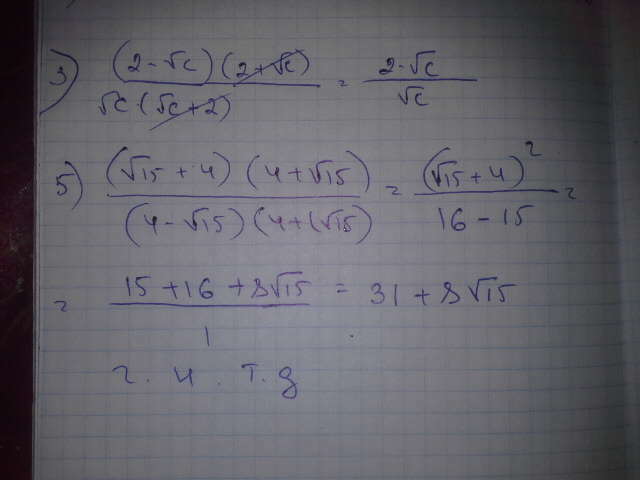 3) (2-√c)(2+√c) / √c·(√c+2) = 2-√c / √c
5) (√15+4)(4+√15) / (4-√15)(4+√15) = (√15+4)² / 16-15 =
= 15+16+8√15 / 1 = 31+8√15
г. и. т. д